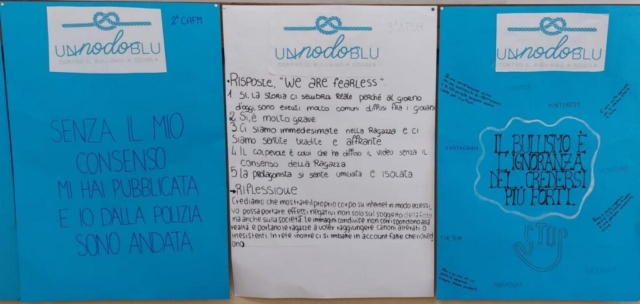 2° CAFM
UN nodo BLU
CONTRO IL BULLISMO A SCUOLA
SENZA IL MIO
CONSENSO
MI HAI PUBBLICATA
E IO DALLA POLIZIA
SONO ANDATA
UN nodo BLU
CONTRO IL BULLISMO A SCUOLA
• RISPOSTE, "WE ARE FEARLESS".
1 Sì. La storia ci sembra reale perché al giorno
d'oggi, sono eventi molto comuni diffusi fra i giovani
2. Sì, è molto grave
3. Ci siamo immedesimate nella Ragazza e ci
siamo sentite tradite e affrante
4. Il colpevole è colui che ha diffuso il video senza il
consenso della Ragazza
5 La protagonista si sente umiliata e isolata
RIFLESSIONE
Crediamo che mostrare il proprio corpo su internet in modo
possa portare effetti negativi non solo sul soggetto della foto
ma anche sulla società. Le immagini condivise non corrispondono alla
realtà e portano le ragazze a voler raggiungere canoni alterati o
inesistenti. In rete inoltre ci si imbatte in account fake che
UN nodo BLU
CONTRO IL BULLISMO A SCUOLA
PINTEREST
INSTAGRAM
IL BULLISMO È
L'IGNORANZA
DEL CREDERSI
PIÙ FORTI.
STOP
TIK TOK